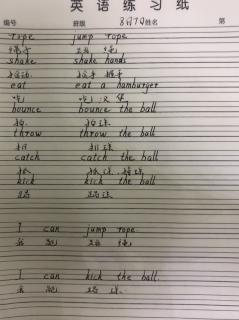 英语练习纸
编号 班级 8月7日 姓名 第
rope jump rope
绳子 跳绳
shake shake hands
摇动 握手
eat eat a hamburger
吃
bounce bounce the ball
拍 拍球
throw throw the ball
扔 扔球
catch catch the ball
抓 抓球 接球
kick kick the ball
踢 踢球
I can jump rope
我 能 跳 绳
I can kick the ball.
我 能 踢 球.